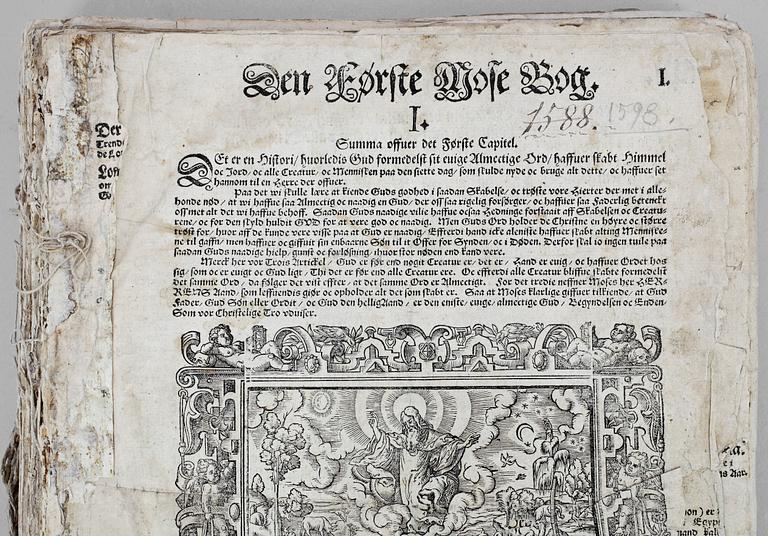 Den Første Mose Bog.
I.
I.
1588. 1598.
Summa offuer det Første Capitel.
DEt er en Histori/ huorledis Gud formedelst sit euige Almectige Ord/ haffuer skabt Himmel
oc Jord/ oc alle Creatur/ oc Mennisken paa den siette dag/ som skulde nyde oc bruge alt dette/ oc haffuer set
hannom til en Herre der offuer.
Paa det wi skulle lære at kiende Guds godhed i saadan Skabelse/ oc trøste vore Hierter der met i alle-
honde nød/ at wi haffue saa Almectig oc naadig en Gud/ der oss saa rigelig forsørger/ oc haffuer saa Faderlig betenckt
oss met alt det wi haffue behoff. Saadan Guds naadige vilie haffue ocsaa Hedninge forstaait aff Skabelsen oc Creatu-
rene/ oc for den skyld huldit GVD for at vere god oc naadig. Men Guds Ord holder de Christne en høyre oc større
trøst for/ huor aff de kunde vere visse paa at Gud er naadig/ Effterdi hand icke aleniste haffuer skabt alting Menniske-
ne til gaffn/ men haffuer oc giffuit sin enbaarne Søn til it Offer for Synden/ oc i Døden. Derfor skal io ingen tuile paa
saadan Guds naadige hielp/ gunst oc forløsning/ ihuor stor nøden end kand vere.
Merck her vor Trois Artickel/ Gud er før end nogit Creatur er/ det er/ Hand er euig/ oc haffuer Ordet hos
sig/ som oc er euigt oc Gud ligt/ Thi det er før end alle Creatur ere. Oc effterdi alle Creatur bliffue skabte formedelst
det samme Ord/ da følger det vist effter/ at det samme Ord er Almectigt. For det tredie neffner Moses her HER-
RENS Aand/ som leffuendis giør oc opholder alt det som skabt er. Saa at Moses klarlige giffuer tilkiende/ at Gud
Fader/ Gud Søn eller Ordit/ oc Gud den hellig Aand/ er den eniste/ euige/ almectige Gud/ Begyndelsen oc Enden/
Som vor Christelige Tro vduiser.
Der
Trend
on